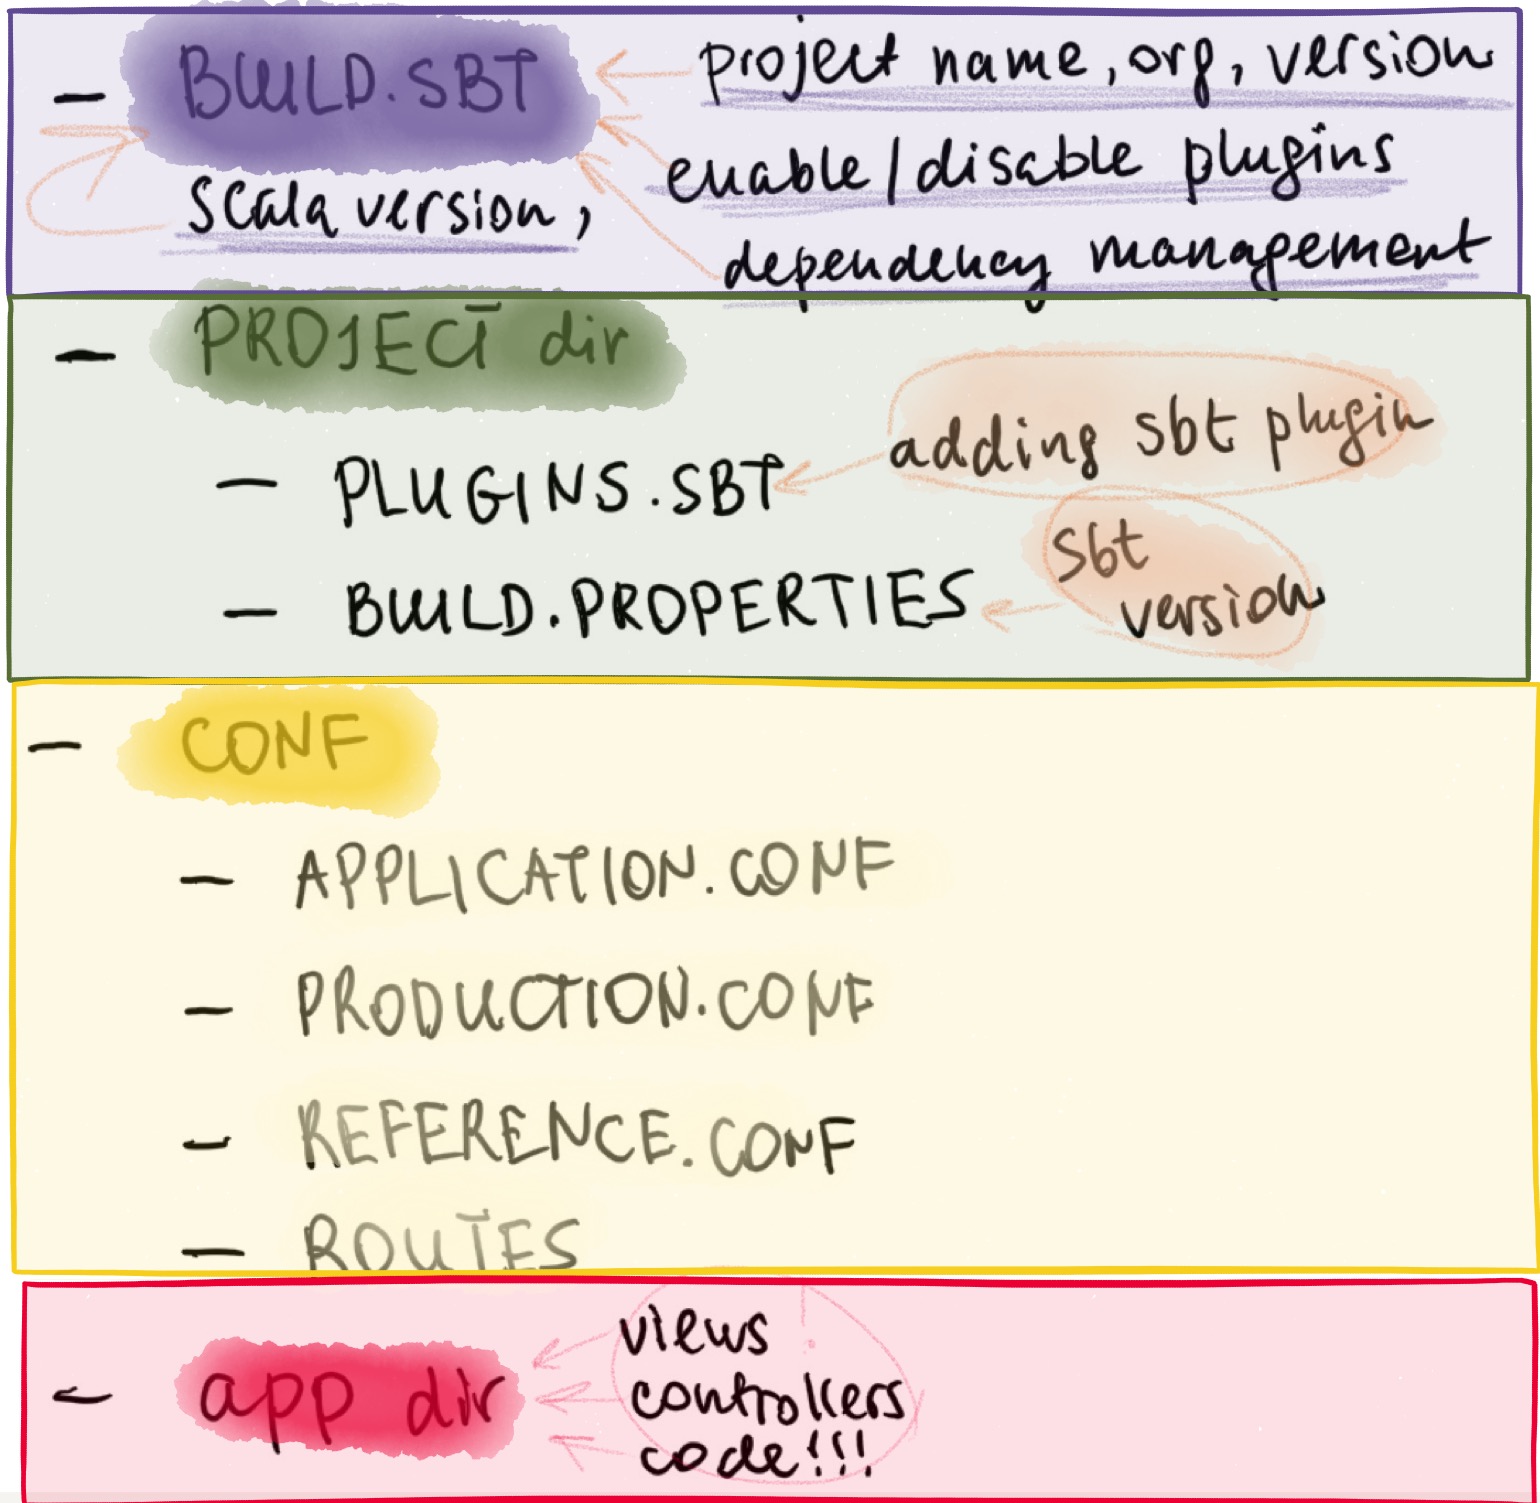 - BUILD.SBT ← project name, org, version
enable/disable plugins
scala version,
dependency management
- PROJECT dir
- PLUGINS.SBT ← adding sbt plugin
- BUILD.PROPERTIES ← sbt version
- CONF
- APPLICATION.CONF
- PRODUCTION.CONF
- REFERENCE.CONF
- ROUTES
- app dir ← views
controllers
code!!!